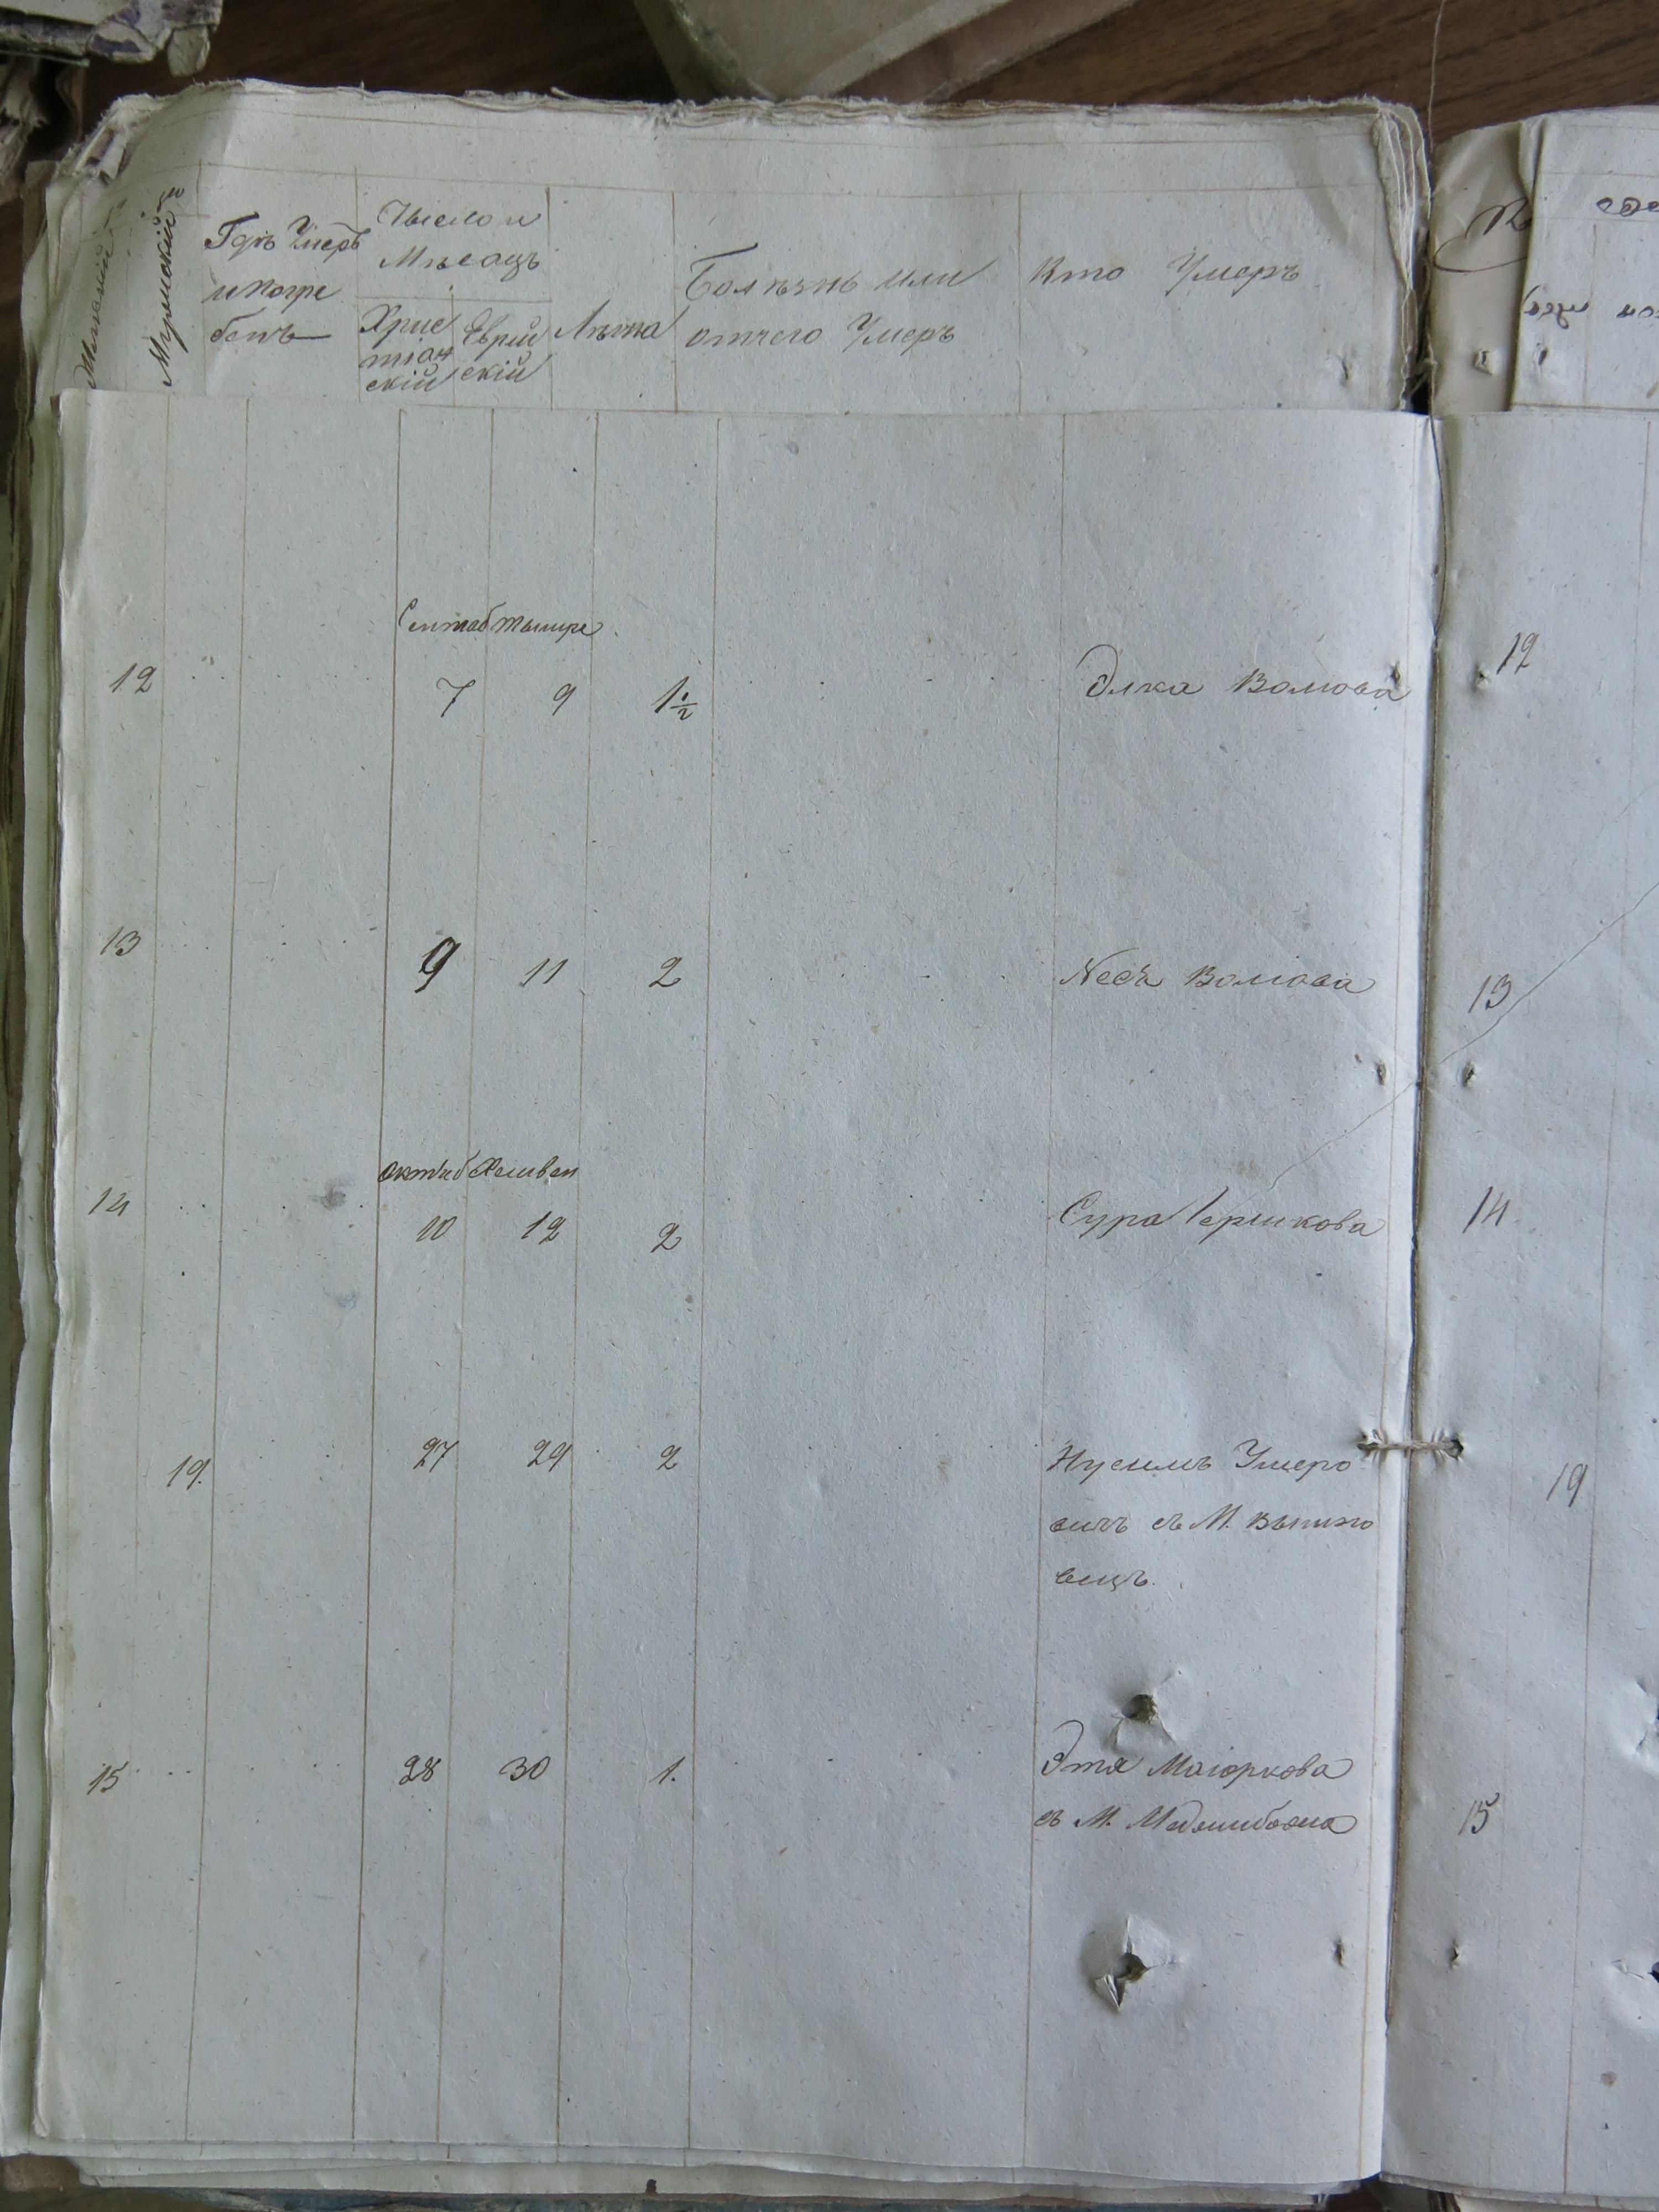 Женскій
Мужескій
Гдѣ Умеръ
и погре
бенъ
Число и
Мѣсацъ
Хрис
тіан
скій
Еврей
скій
Лѣта
Болѣзнь или
отчего Умеръ
Кто Умеръ
Сентяб Тышре
12 7 9 1½ Элка Волкова 12
13 9 11 2 Неся Волкова 13
Октяб Хешвен
14 10 12 2 Сура Гершкова 14
19. 27 29 2 Нусимъ Ушеро 19
вичъ съ М.
вецъ.
15 28 30 1. Этя Маіоркова
съ М. Меджибожа 15